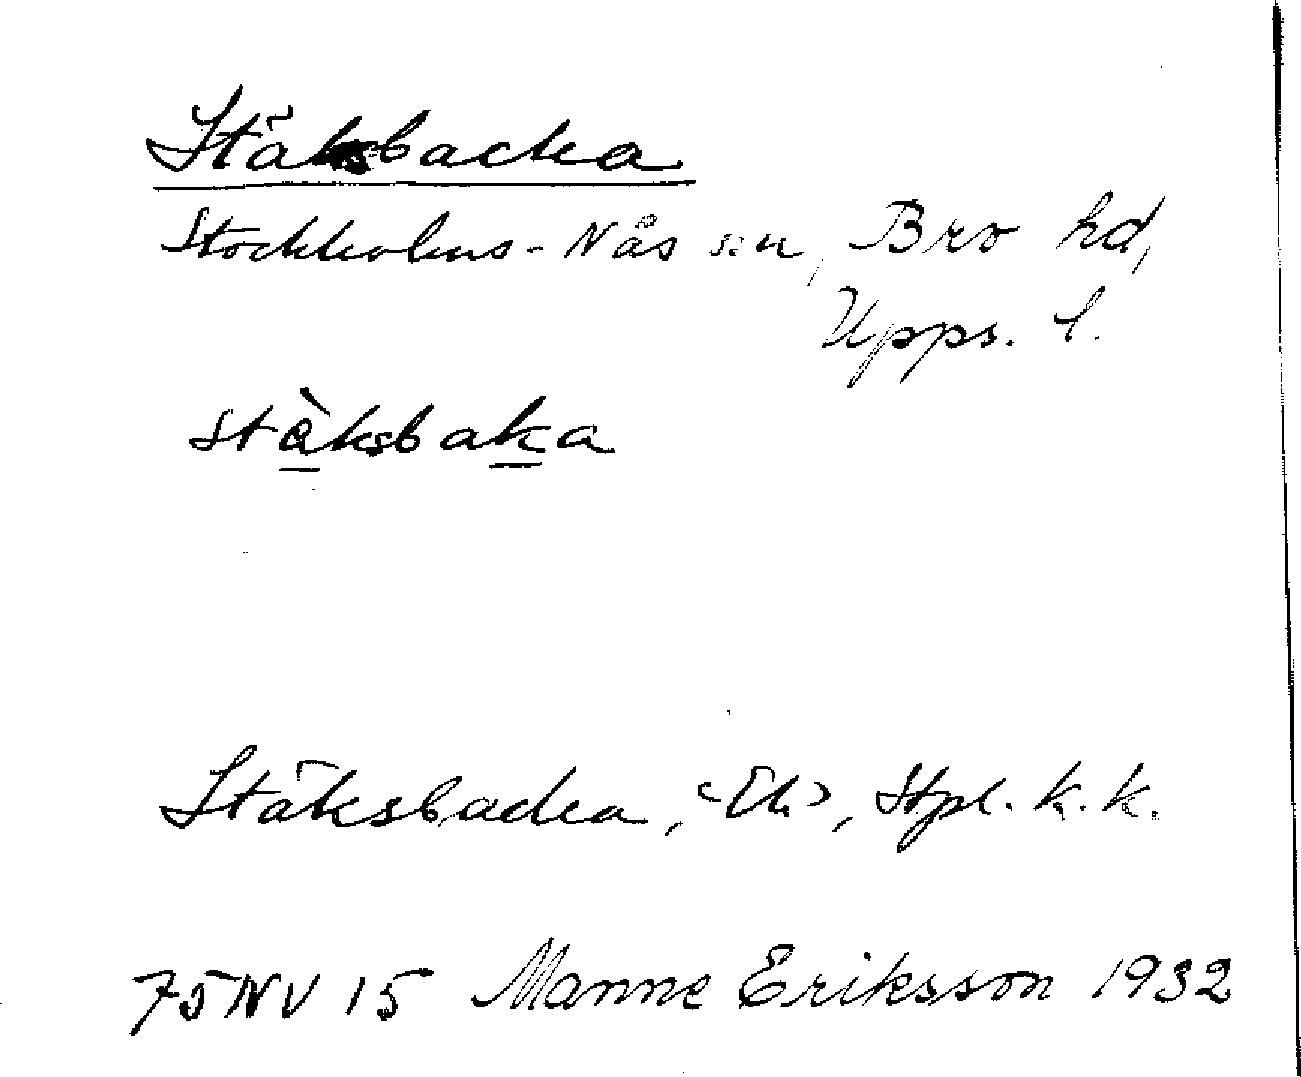 Stäksbacka
Stockholms-Nås sn, Bro hd,
Upps. l.
stàksbaka
Stäksbacka, <Eh>, Stpl. k. k.
75 NV 15 Manne Eriksson 1932